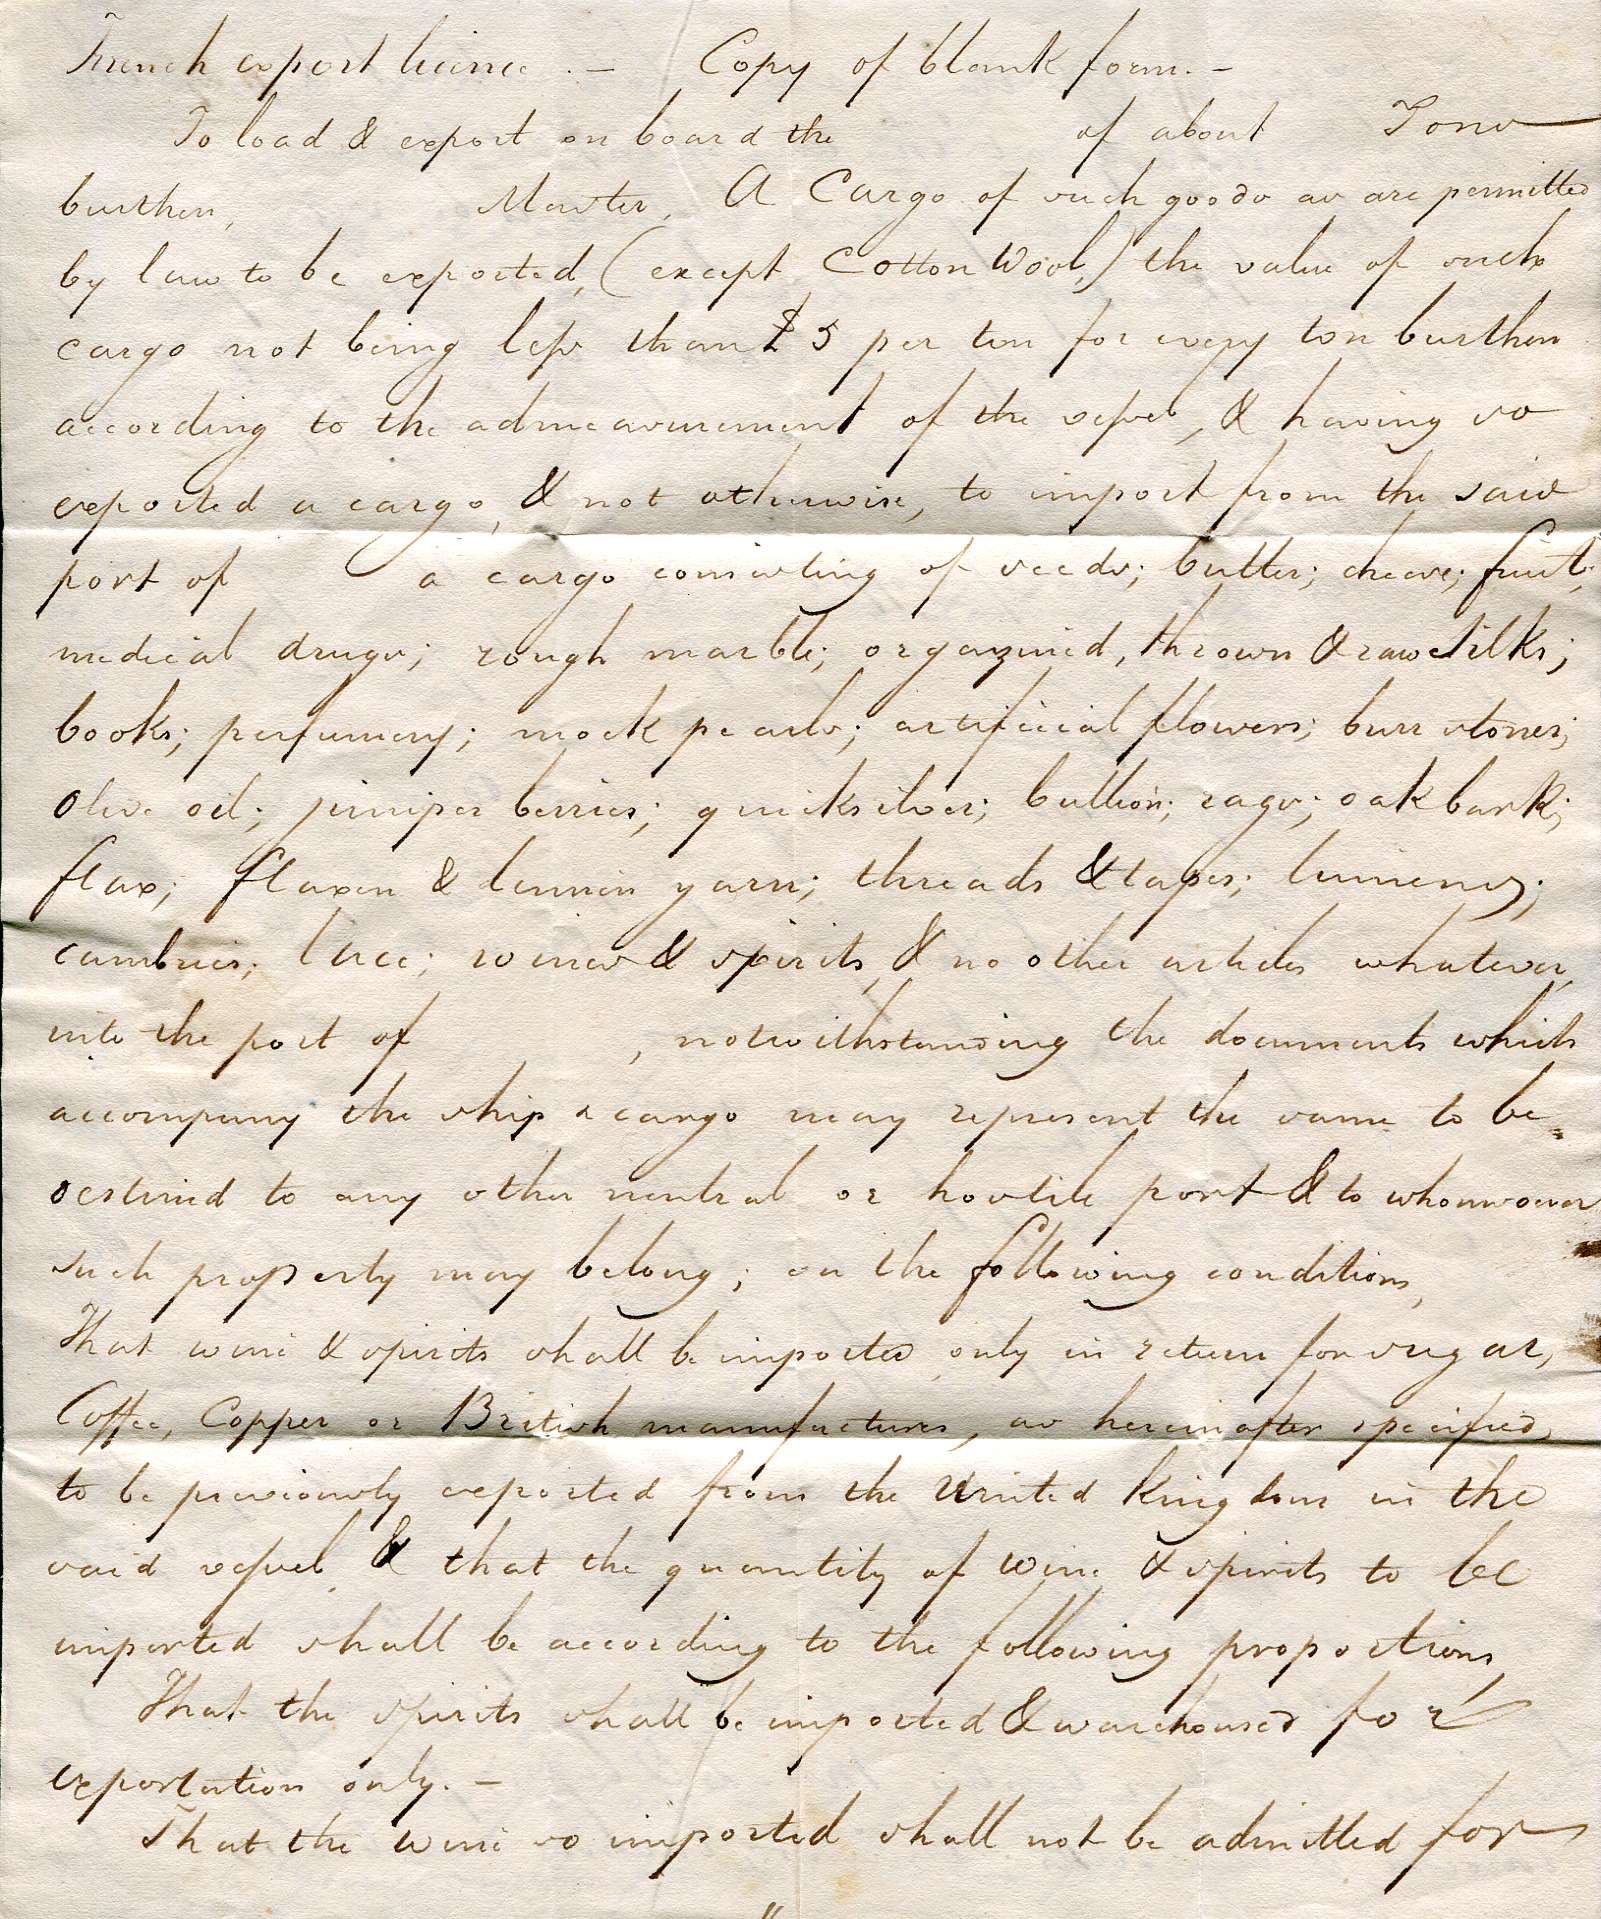 French export licence. — Copy of blank form. —
To load & export on board the of about Tons
burthen, Master, A Cargo of such goods as are permitted
by law to be exported, (except Cotton Wool,) the value of such
cargo not being less than £5 per ton for every ton burthen
according to the admeasurement of the vessel, & having so
exported a cargo, & not otherwise, to import from the said
port of a cargo consisting of seeds; butter; cheese; fruit;
medical drugs; rough marble; organzined, thrown & raw silks;
books; perfumery; mock pearls; artificial flowers; burr stones;
Olive oil; juniper berries; quicksilver; bullion; rags; oak bark;
flax; flaxen & linnen yarn; threads & tapes; linnens;
cambrics; lace; wines & spirits, & no other articles whatever,
into the port of , notwithstanding the documents which
accompany the ship & cargo may represent the same to be
destined to any other neutral or hostile port & to whomsoever
such property may belong; on the following conditions,
That wine & spirits shall be imported only in return for sugar,
Coffee, Copper or British manufactures, as hereinafter specified,
to be previously exported from the United Kingdom in the
said vessel, & that the quantity of wine & spirits to be
imported shall be according to the following proportions,
That the spirits shall be imported & warehoused for
exportation only. —
That the wine so imported shall not be admitted for
"